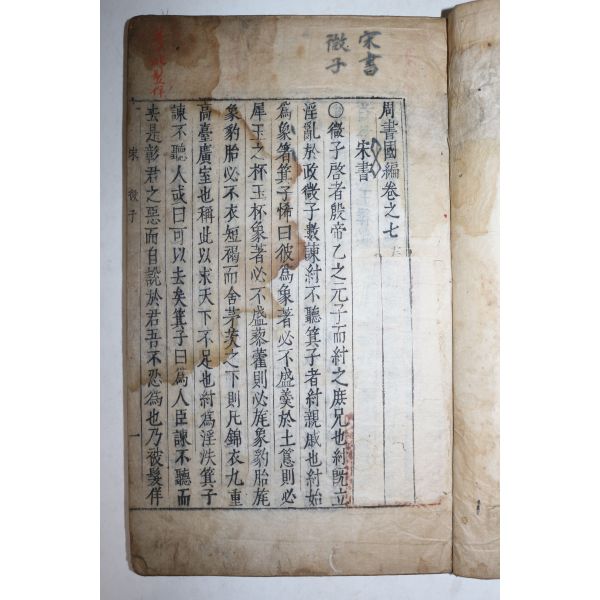 宋書
微子
周書國編卷之七
宋書
○微子啓者殷帝乙之元子而紂之庶兄也紂旣立
淫亂於政微子數諫紂不聽箕子者紂親戚也紂始
爲象箸箕子悕曰彼爲象著必不盛羹於土簋則必
犀玉之杯玉杯象著必不盛藜藿則必旄象豹胎旄
象豹胎必不衣短褐而舍茅茨之下則凡錦衣九重
高臺廣室也稱此以求天下不足也紂爲淫泆箕子
諫不聽人或曰可以去矣箕子曰爲人臣諫不聽而
去是彰君之惡而自說於君吾不忍爲也乃被髮佯
宋 微子 一